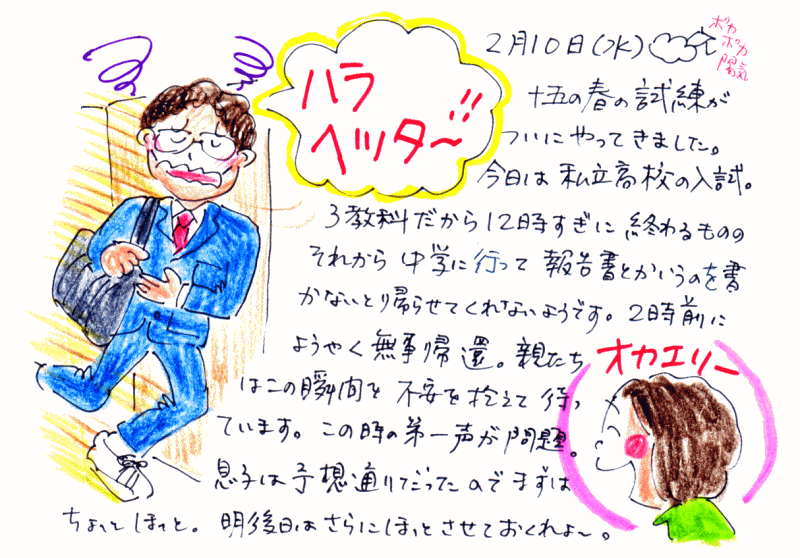 2月10日(水)
ポカ
ポカ
陽気
ハラ
ヘッタ〜!!
十五の春の試練が
ついにやってきました。
今日は私立高校の入試。
3教科だから12時すぎに終わるものの
それから中学に行って報告書とかいうのを書
かないと帰らせてくれないようです。2時前に
ようやく無事帰還。親たち
はこの瞬間を不安を抱えて待っ
ています。この時の第一声が問題。
息子は予想通りだったのでまずは
ちょっとほっと。明後日はさらにほっとさせておくれよ〜。
オカエリー